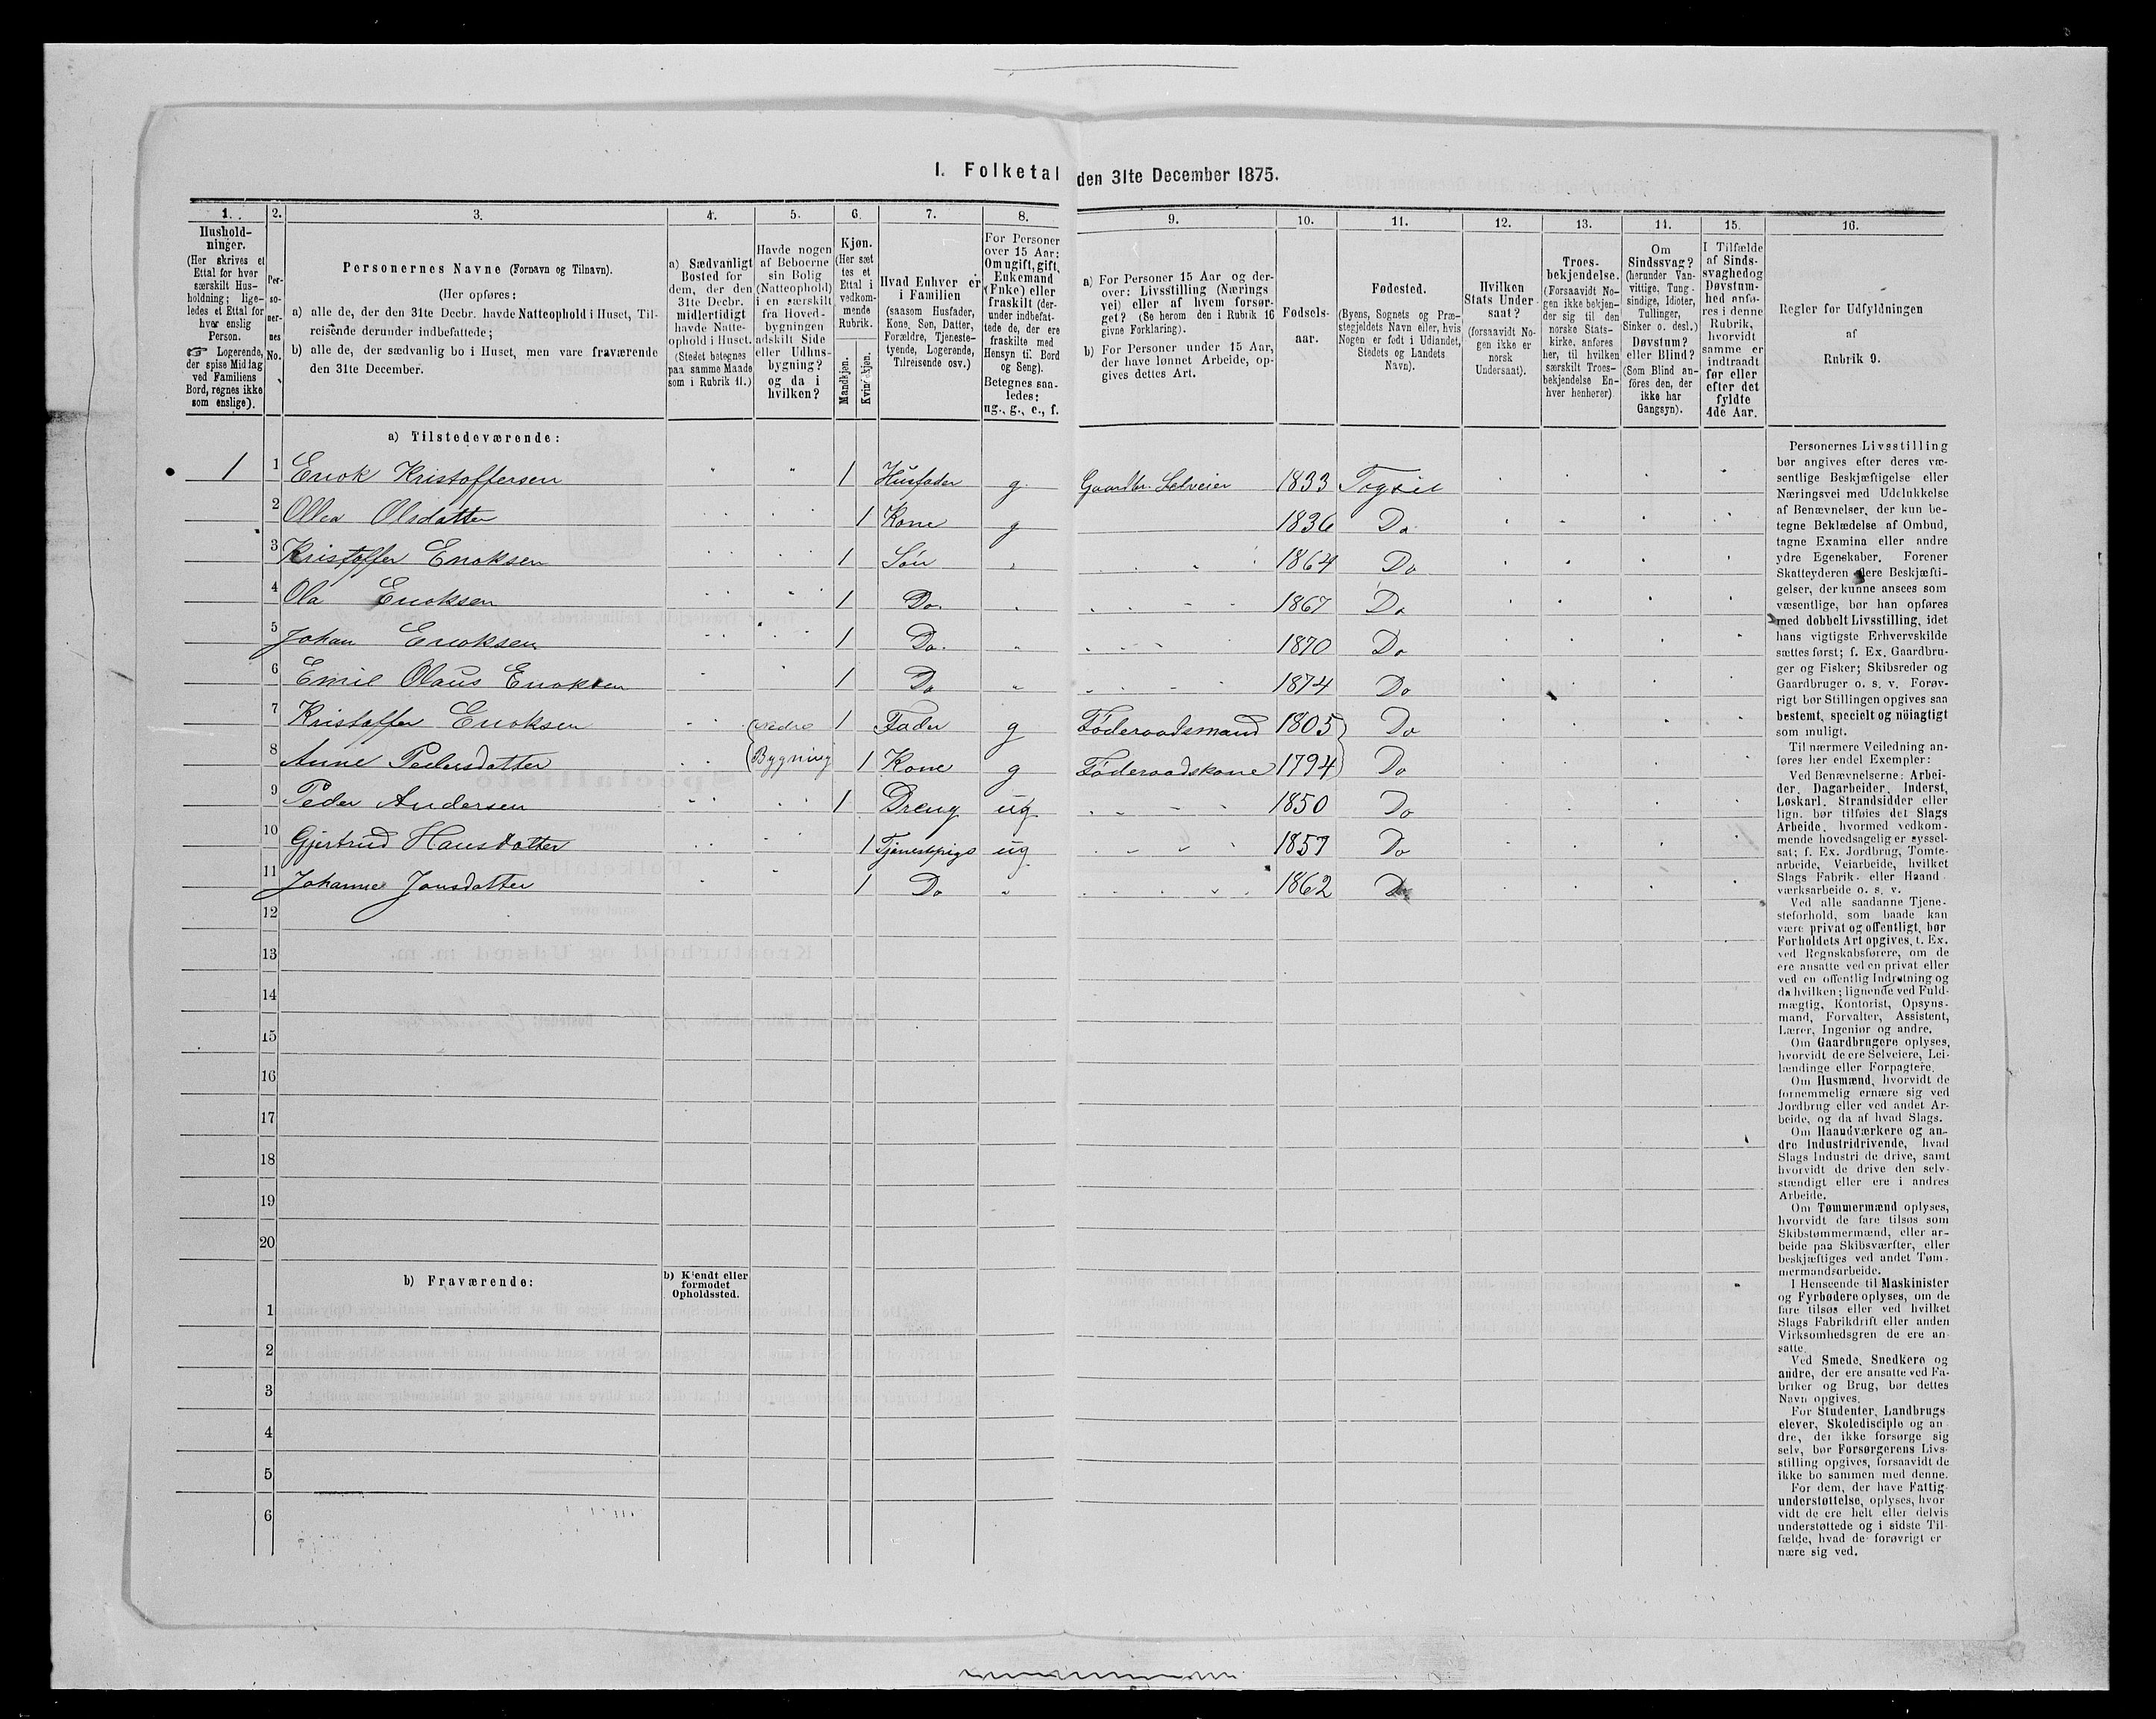 I. Folketal den 31te December 1875.
1. 2. 3. 4. 5. 6. 7. 8. 9. 10. 11. 12. 13. 14. 15. 16.
Hushold-
ninger.
(Her skrives et
Ettal for hver
særskilt Hus-
holdning; lige-
ledes et Ettal for
hver enslig
Person.
☞ Logerende,
der spise Middag
ved Familiens
Bord, regnes ikke
som enslige).
Per-
so-
ner-
nes
No.
Personernes Navne (Fornavn og Tilnavn).
(Her opføres:
a) alle de, der den 31te Decbr. havde Natteophold i Huset, Til-
reisende derunder indbefattede;
b) alle de, der sædvanlig bo i Huset, men vare fraværende
den 31te December.
a) Sædvanligt
Bosted for
dem, der den
31te Decbr.
midlertidigt
havde Natte-
ophold i Huset.
(Stedet betegnes
paa samme Maade
som i Rubrik 11.)
Havde nogen
af Beboerne
sin Bolig
(Natteophold)
i en særskilt
fra Hoved-
bygningen
adskilt Side
eller Udhus-
bygning?
og da i
hvilken?
Kjøn.
(Her sæt
tes et
Ettal i
vedkom-
mende
Rubrik.
Mandkjøn.
Kvindekjøn.
Hvad Enhver er
i Familien
(saasom Husfader,
Kone, Søn, Datter,
Forældre, Tjeneste-
tyende, Logerende,
Tilreisende osv.)
For Personer
over 15 Aar:
Om ugift, gift,
Enkemand
(Enke) eller
fraskilt (der-
under indbefat-
tede de, der ere
fraskilte med
Hensyn til Bord
og Seng).
Betegnes saa-
ledes:
ug., g., e., f.
a) For Personer 15 Aar og der-
over: Livsstilling (Nærings
vei) eller af hvem forsør-
get? (Se herom den i Rubrik 16
givne Forklaring).
b) For Personer under 15 Aar,
der have lønnet Arbeide, op-
gives dettes Art.
Fødsels-
aar.
Fødested.
(Byens, Sognets og Præ-
stegjeldets Navn eller, hvis
Nogen er født i Udlandet,
Stedets og Landets
Navn).
Hvilken
Stats Under-
saat?
(forsaavidt No-
gen ikke er
norsk
Undersaat).
Troes-
bekjendelse.
(Forsaavidt No-
gen ikke bekjen-
der sig til den
norske Stats-
kirke, anføres
her, til hvilken
særskilt Troes-
bekjendelse En-
hver henhører)
Om
Sindssvag?
(herunder Van-
vittige, Tung-
sindige, Idioter,
Tullinger,
Sinker o. desl.)
Døvstum?
eller Blind?
(Som Blind an-
føres den, der
ikke har
Gangsyn).
I Tilfælde
af Sinds-
svaghedog
Døvstum-
hed anfø-
res i denne
Rubrik,
hvorvidt
samme er
indtraadt
før eller
efter det
fyldte
4de Aar.
Regler for Udfyldningen
af
Rubrik 9.
a) Tilstedeværende:
1 1 Enok Kristoffersen 1 Husfader g Gaardbr. Selveier 1833
2 Ollea Olsdatter 1 Kone g 1836 Do
3 Kristoffer Enoksen 1 Søn 1864 Do
4 Ola Enoksen 1 Do. 1867 Do
5 Johan Enoksen 1 Do. 1870 Do
6 Emil Olaus Enoksen 1 Do 1874 Do
7 Kristoffer Enoksen Nedre 1 Fader g Føderaadsmand 1805 Do
8 Anne Pedersdatter Bygning 1 Kone g Føderaadskone 1794 Do
9 Peder Andersen 1 Dreng ug 1850 Do
10 Gjertrud Hansdatter 1 Tjenestpige ug 1857 Do
11 Johanne Jonsdatter 1 Do 1862 Do
12
13
14
15
16
17
18
19
20
b) Fraværende:
b) Kjendt eller
formodet
Opholdssted.
1
2
3
4
5
6
Personernes Livsstilling
bør angives efter deres væ-
sentlige Beskjæftigelse eller
Næringsvei med Udelukkelse
af Benævnelser, der kun be-
tegne Beklædelse af Ombud,
tagne Examina eller andre
ydre Egenskaber. Forener
Skatteyderen flere Beskjæfti-
gelser, der kunne ansees som
væsentlige, bør han opføres
med dobbelt Livsstilling, idet
hans vigtigste Erhvervskilde
sættes først; f. Ex. Gaardbru-
ger og Fisker; Skibsreder og
Gaardbruger o. s. v. Forøv-
rigt bør Stillingen opgives saa
bestemt, specielt og nöiagtigt
som muligt.
Til nærmere Veiledning an-
føres her endel Exempler:
Ved Benævnelserne: Arbei-
der, Dagarbeider, Inderst,
Løskarl, Strandsidder eller
lign. bør tilføies det Slags
Arbeide, hvormed vedkom-
mende hovedsagelig er syssel-
sat; f. Ex. Jordbrug, Tomte-
arbeide, Veiarbeide, hvilket
Slags Fabrik- eller Haand-
værksarbeide o. s. v.
Ved alle saadanne Tjene-
steforhold, som baade kan
være privat og offentligt, bør
Forholdets Art opgives, t. Ex.
ved Regnskabsførere, om de
ere ansatte ved en privat eller
ved en offentlig Indretning og
da hvilken; lignende ved Fuld-
mægtig, Kontorist, Opsyns-
mand, Forvalter, Assistent,
Lærer, Ingeniør og andre.
Om Gaardbrugere oplyses,
hvorvidt de ere Selveiere, Lei-
lændinge eller Forpagtere.
Om Husmænd, hvorvidt de
fornemmelig ernære sig ved
Jordbrug eller ved andet Ar-
beide, og da af hvad Slags.
Om Haandværkere og an-
dre Industridrivende, hvad
Slags Industri de drive, samt
hvorvidt de drive den selv-
stændigt eller ere i andres
Arbeide.
Om Tømmermænd oplyses,
hvorvidt de fare tilsøs som
Skibstømmermænd, eller ar-
beide paa Skibsværfter, eller
beskjæftiges ved andet Tøm-
mermandsarbeide.
I Henseende til Maskinister
og Fyrbødere oplyses, om de
fare tilsøs eller ved hvilket
Slags Fabrikdrift eller anden
Virksomhedsgren de ere an-
satte.
Ved Smede, Snedkere og
andre, der ere ansatte ved Fa-
briker og Brug, bør dettes
Navn opgives.
For Studenter, Landbrugs
elever, Skoledisciple og an
dre, der ikke forsørge sig
selv, bør Forsørgerens Livs-
stilling opgives, forsaavidt de
ikke bo sammen med denne.
For dem, der have Fattig-
understøttelse, oplyses, hvor
vidt de ere helt eller delvis
understøttede og i sidste Til-
fælde, hvad de forøvrigt er
nære sig ved.